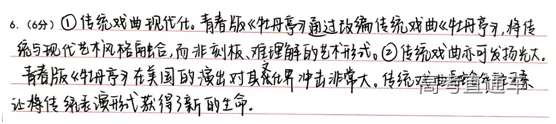 6.(6分)①传统戏曲现代化。青春版《牡丹亭》通过改编传统戏曲《牡丹亭》,将传
统与现代艺术风格融合,而非刻板、难理解的艺术形式。②传统戏曲亦可发扬光大。
青春版《牡丹亭》在美国的演出对其界冲击非常大。传统戏曲
让将传统表演形式获得了新的生命。
高考直通车